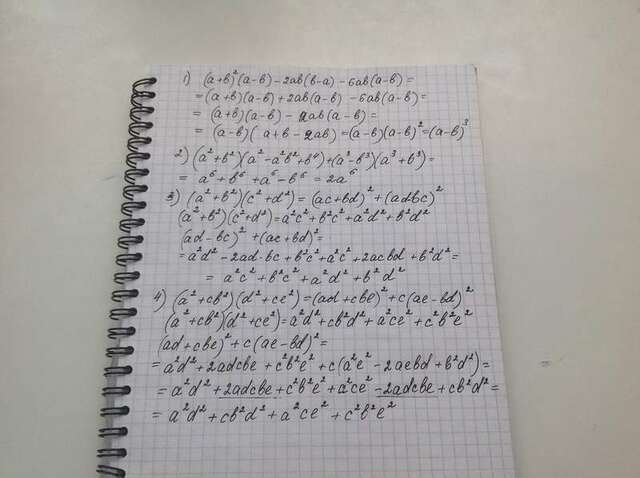 1) (a+b)²(a-b)-2ab(b-a)-6ab(a-b)=
=(a+b)(a-b)+2ab(a-b)-6ab(a-b)=
=(a+b)(a-b)-2ab(a-b)=
=(a-b)(a+b-2ab)=(a-b)(a-b)²=(a-b)³
2) (a²+b²)(a²-a²b²+b⁴)+(a³-b³)(a³+b³)=
= a⁶+b⁶+a⁶-b⁶ = 2a⁶
3) (a²+b²)(c²+d²)=(ac+bd)²+(adbc)²
(a²+b²)(c²+d²)=a²c²+b²c²+a²d²+b²d²
(ad-bc)²+(ac+bd)²=
=a²d²-2ad·bc+b²c²+a²c²+2acbd+b²d²=
= a²c²+b²c²+a²d²+b²d²
4) (a²+cb²)(d²+ce²)=(ad+cbe)²+c(ae-bd)²
(a²+cb²)(d²+ce²)=a²d²+cb²d²+a²ce²+c²b²e²
(ad+cbe)²+c(ae-bd)²=
=a²d²+2adcbe+c²b²e²+c(a²e²-2aebd+b²d²)=
=a²d²+2adcbe+c²b²e²+a²ce²-2adcbe+cb²d²=
=a²d²+cb²d²+a²ce²+c²b²e²